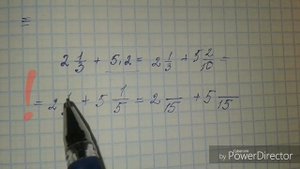 =
2 1/3 + 5,2 = 2 1/3 + 5 2/10 =
! = 2 1/ + 5 1/5 = 2 /15 + 5 /15
PowerDirector